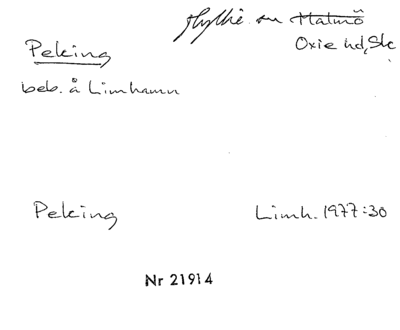 Hyllie sn Malmö
Peking
Oxie hd, Sk.
beb. å Limhamn
Peking Limh. 1977:30
Nr 21914